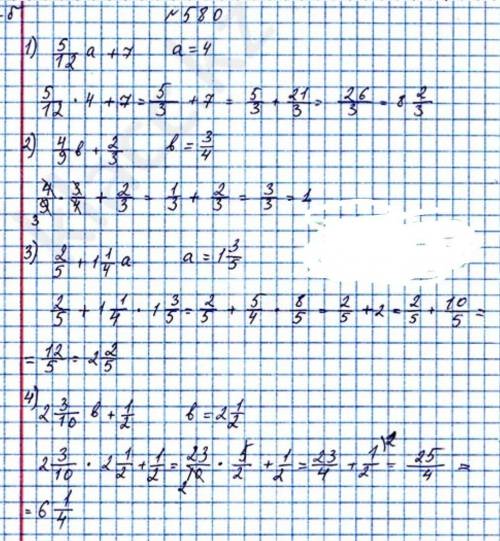 №580
1) 5/12 a + 7 a = 4
5/12 · 4 + 7 = 5/3 + 7 = 5/3 + 21/3 = 26/3 = 8 2/3
2) 4/9 b + 2/3 b = 3/4
4/9 · 3/4 + 2/3 = 1/3 + 2/3 = 3/3 = 1
3
3) 2/5 + 1 1/4 a a = 1 3/5
2/5 + 1 1/4 · 1 3/5 = 2/5 + 5/4 · 8/5 = 2/5 + 2 = 2/5 + 10/5 =
= 12/5 = 2 2/5
4) 2 3/10 b + 1/2 b = 2 1/2
2 3/10 · 2 1/2 + 1/2 = 23/10 · 5/2 + 1/2 = 23/4 + 1/2 \2 = 25/4 =
2
= 6 1/4